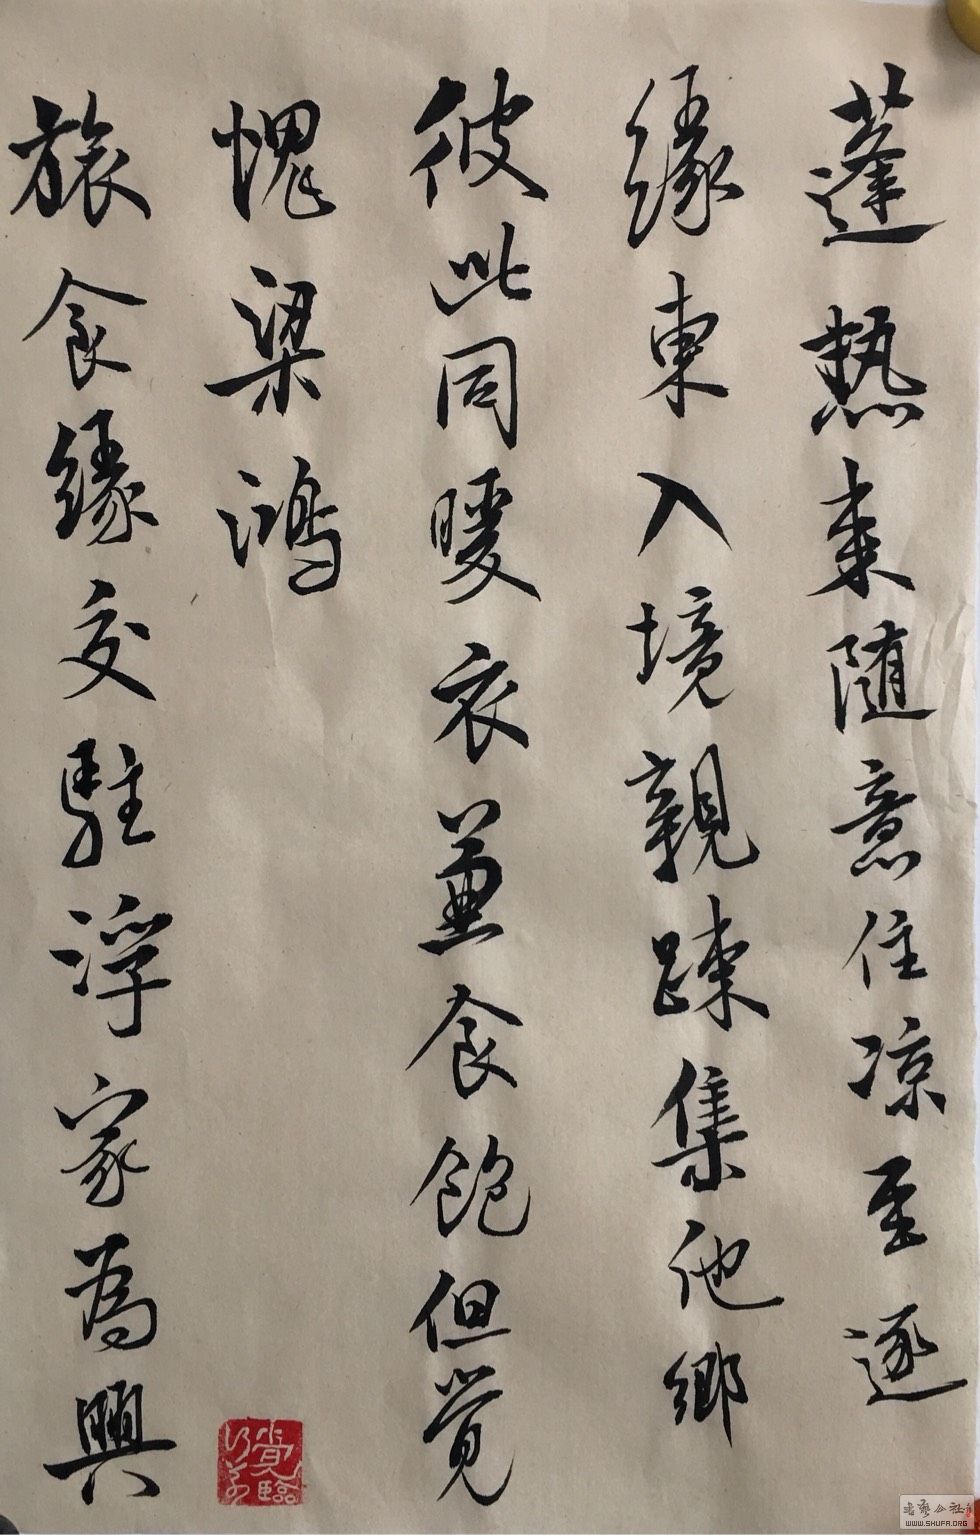 蓬熱来随意住凉至逐
緣東入境親踈集他鄉
彼此同暖衣兼食飽但覺
愧梁鴻
旅食緣交駐浮家為興
WWW.SHUFA.ORG